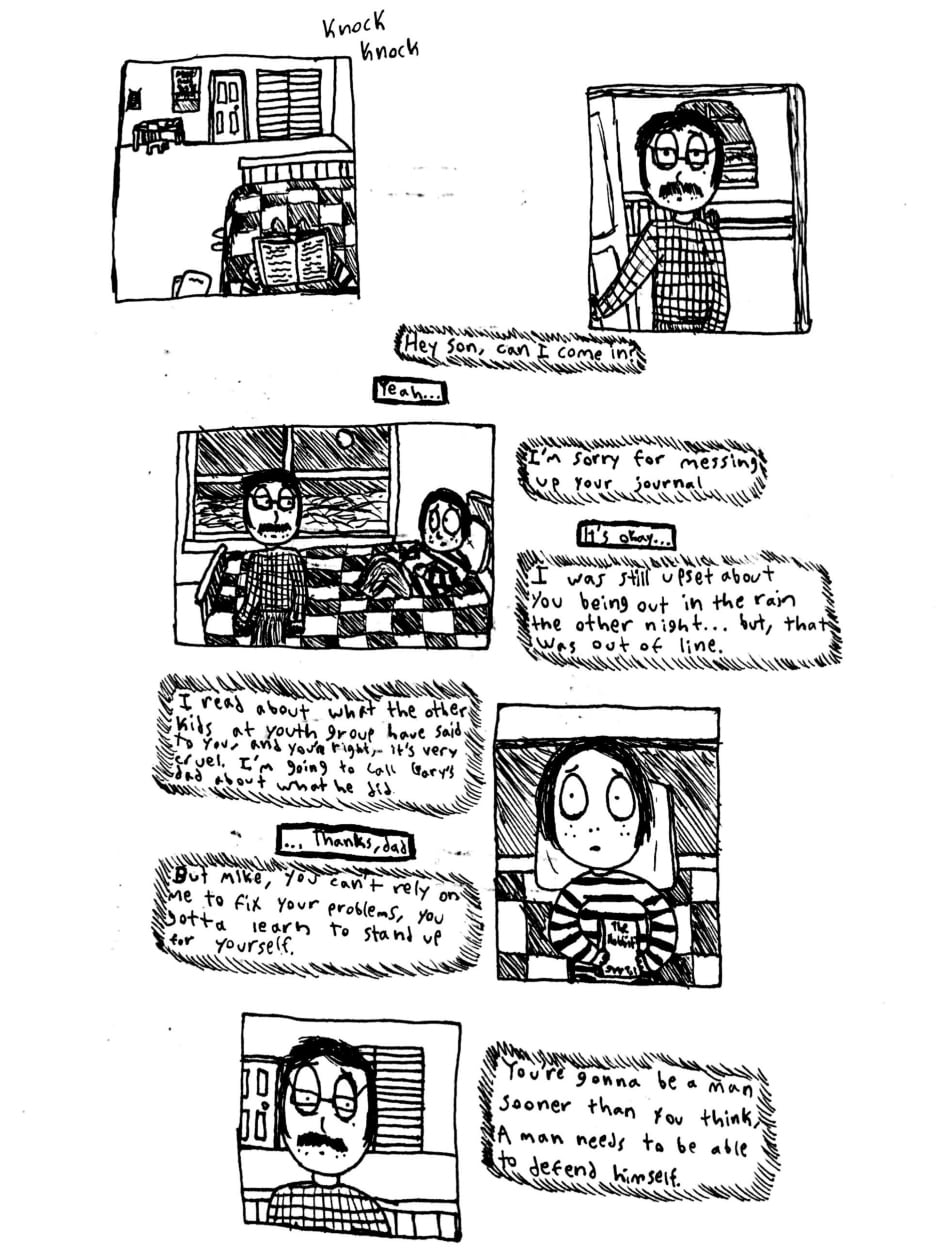 Knock
Knock
Hey son, can I come in?
Yeah...
I'm sorry for messing
up your journal
It's okay...
I was still upset about
you being out in the rain
the other night... but, that
was out of line.
I read about what the other
kids at youth group have said
to you, and you're right, it's very
cruel. I'm going to call Gary's
dad about what he did.
... Thanks, dad
But Mike, you can't rely on
me to fix your problems, you
gotta learn to stand up
for yourself.
The
Hobbit
You're gonna be a man
sooner than you think,
A man needs to be able
to defend himself.